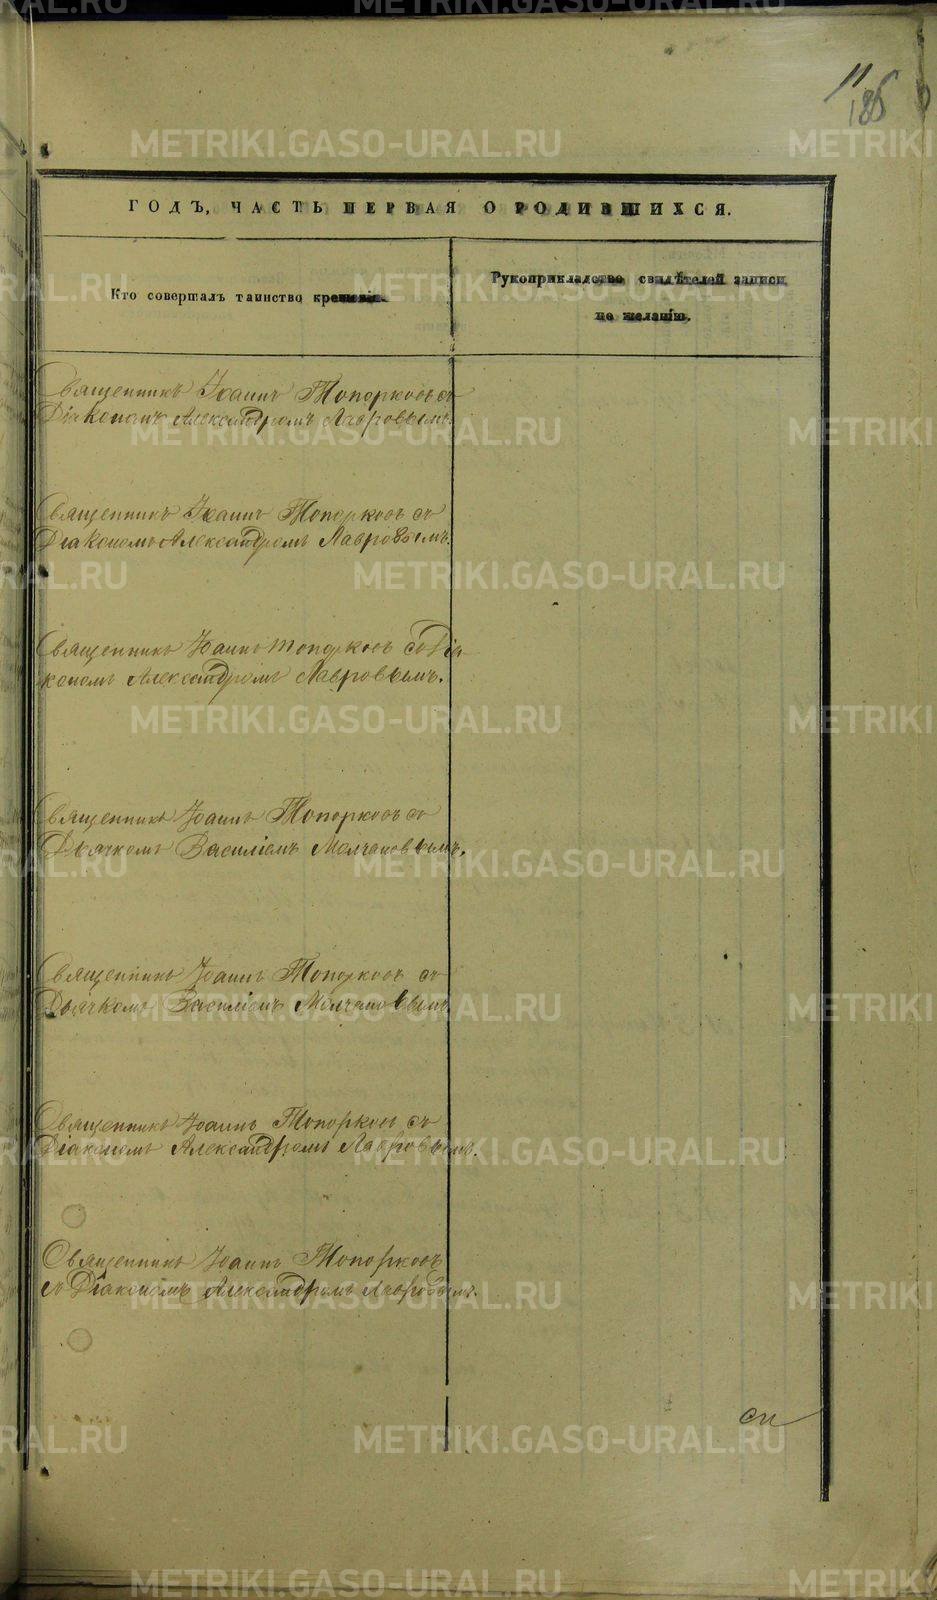 11
185
ГОДЪ, ЧАСТЬ ПЕРВАЯ О РОДИВШИХСЯ.
Кто совершалъ таинство крещенія.
Рукоприкладство свидѣтелей записи
по желанію.
Священникъ Іоаннъ Топорковъ съ
Діакономъ Александромъ Лавровымъ.
Священникъ Іоаннъ Топорковъ съ
Діакономъ Александромъ Лавровымъ.
Священникъ Іоаннъ Топорковъ съ Діа-
кономъ Александромъ Лавровымъ.
Священникъ Іоаннъ Топорковъ съ
Дьячкомъ Василіемъ Молчановымъ.
Священникъ Іоаннъ Топорковъ съ
Дьячкомъ Василіемъ Молчановымъ.
Священникъ Іоаннъ Топорковъ съ
Діакономъ Александромъ Лавровымъ.
Священникъ Іоаннъ Топорковъ
съ Діакономъ Александромъ Лавровымъ.
METRIKI.GASO-URAL.RU